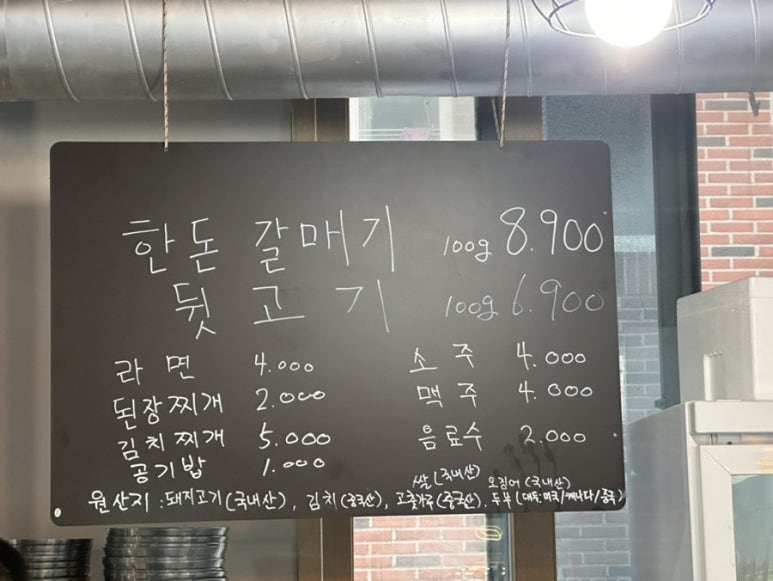 한돈 갈매기 100g 8.900
뒷고기 100g 6.900
라면 4.000
소주 4.000
된장찌개 2.000
맥주 4.000
김치찌개 5.000
음료수 2.000
공기밥 1.000
쌀(국내산) 오징어(국내산)
원산지 : 돼지고기(국내산), 김치(중국산), 고춧가루(중국산), 두부(대두:미국/캐나다/중국)